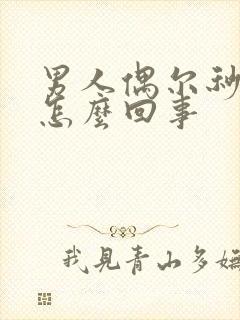 男人偶尔秒
怎麼回事
我見青山多嫵